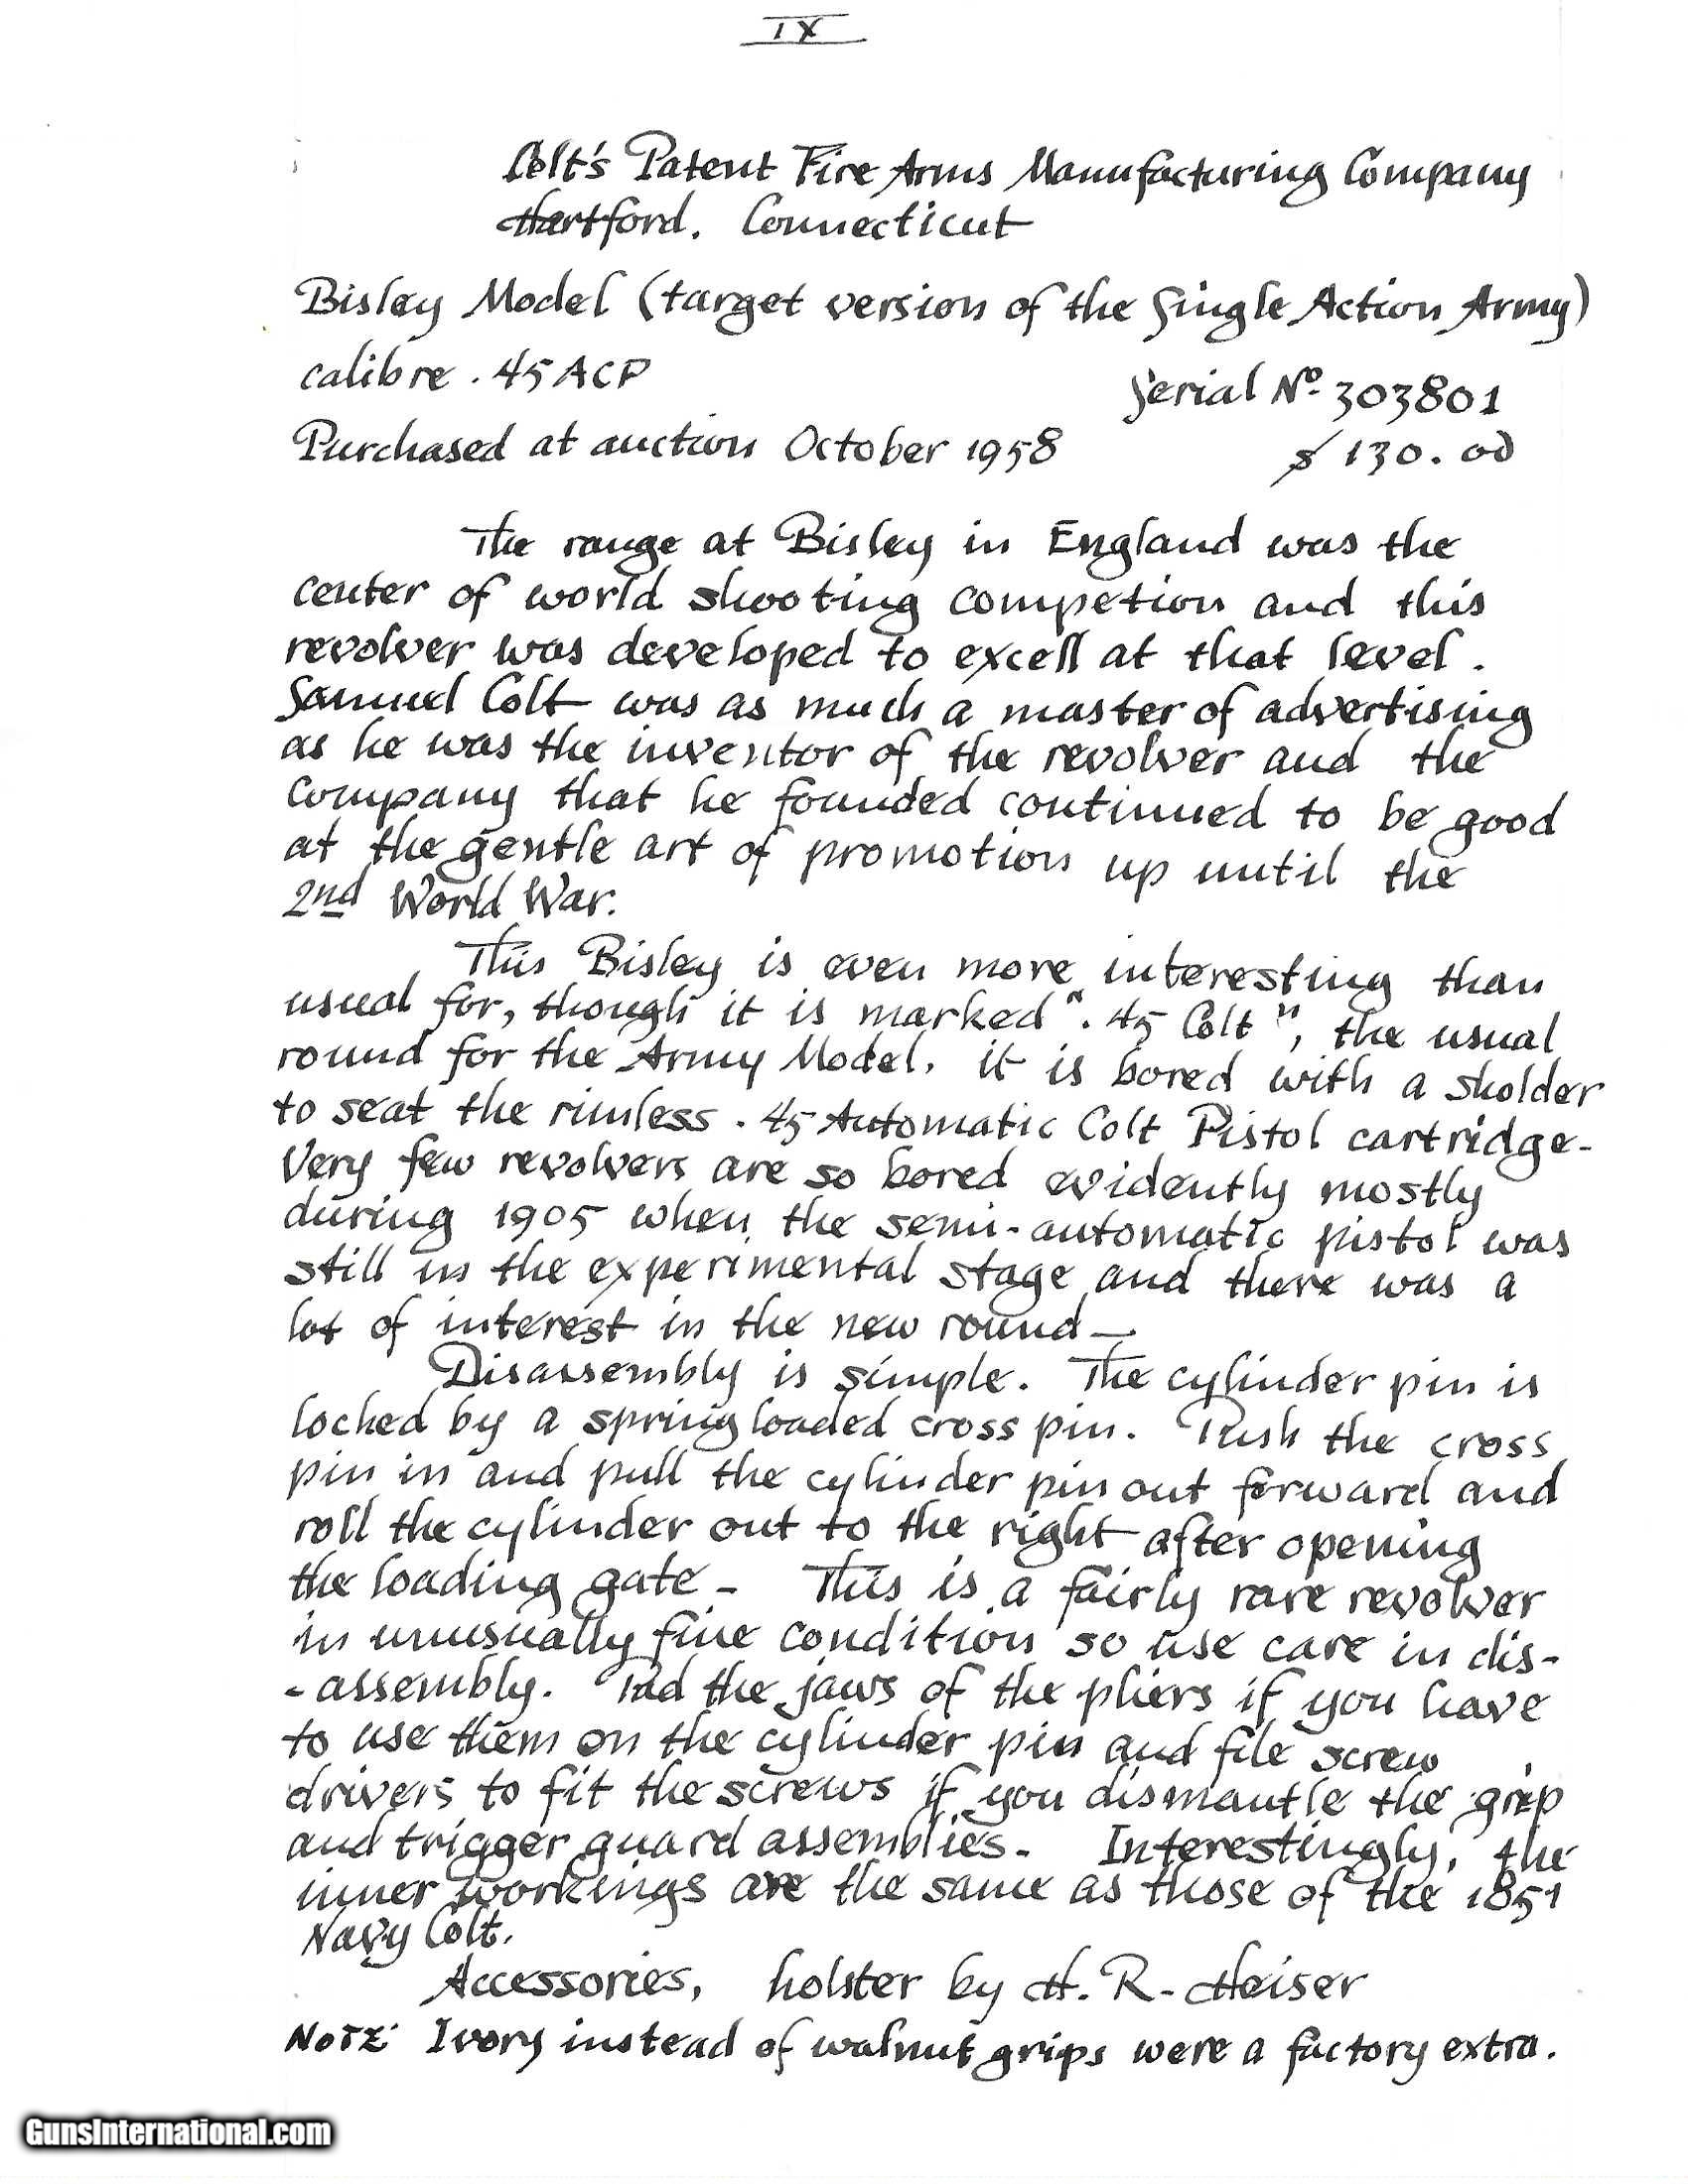 IX
Colt's Patent Fire Arms Manufacturing Company
Hartford. Connecticut
Bisley Model (target version of the Single Action Army)
calibre .45 ACP
Serial No. 303801
Purchased at auction October 1958
$ 130.00
The range at Bisley in England was the
center of world shooting competion and this
revolver was developed to excell at that level.
Samuel Colt was as much a master of advertising
as he was the inventor of the revolver and the
company that he founded continued to be good
at the gentle art of promotion up until the
2nd World War.
This Bisley is even more interesting than
usual for, though it is marked ".45 Colt", the usual
round for the Army Model, it is bored with a sholder
to seat the rimless .45 Automatic Colt Pistol cartridge-
Very few revolvers are so bored evidently mostly
during 1905 when the semi-automatic pistol was
still in the experimental stage and there was a
lot of interest in the new round—
Disassembly is simple. The cylinder pin is
locked by a spring loaded cross pin. Push the cross
pin in and pull the cylinder pin out forward and
roll the cylinder out to the right after opening
the loading gate - This is a fairly rare revolver
in unusually fine condition so use care in dis-
-assembly. Pad the jaws of the pliers if you have
to use them on the cylinder pin and file screw
drivers to fit the screws if you dismantle the grip
and trigger guard assemblies- Interestingly, the
inner workings are the same as those of the 1851
Navy Colt.
Accessories, holster by H. R. Heiser
NOTE: Ivory instead of walnut grips were a factory extra.
GunsInternational.com